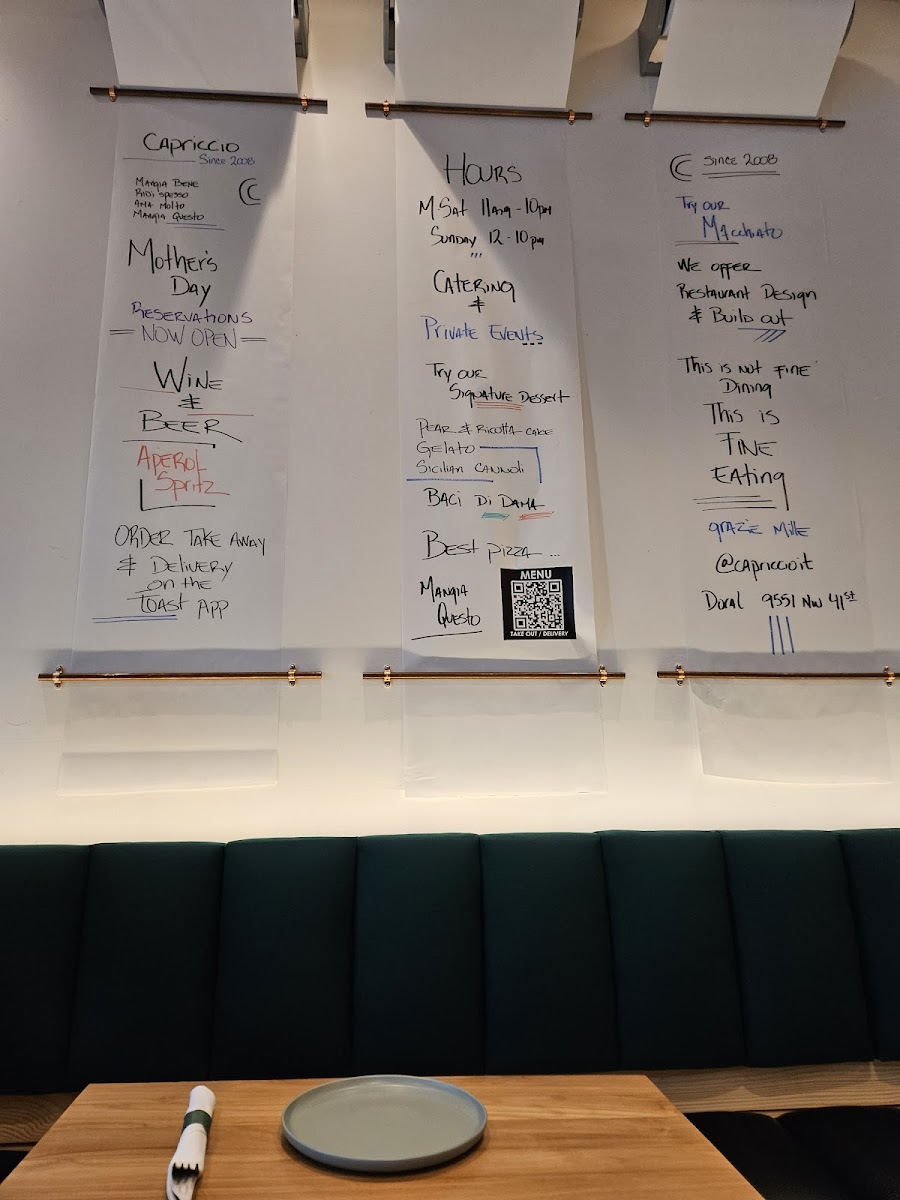 CAPRICCIO
Since 2008
MANGIA BENE
RIDI SPESSO
AMA MOLTO
MANGIA QUESTO
Mother's
Day
RESERVATIONS
NOW OPEN
WINE
&
BEER
APEROL
Spritz
ORDER TAKE AWAY
& DELIVERY
on the
TOAST APP
HOURS
M-Sat 11am-10pm
SUNDAY 12-10pm
CATERING
&
PRIVATE EVENTS
Try our
Signature Dessert
PEAR & RICOTTA CAKE
GELATO
SICILIAN CANNOLI
BACI DI DAMA
BEST pizza ...
MANGIA
QUESTO
MENU
TAKE OUT / DELIVERY
Since 2008
Try our
Macchiato
WE OFFER
RESTAURANT DESIGN
& BUILD OUT
This is not FINE
Dining
This is
FINE
EATING
GRAZIE MILLE
@CAPRICCIOIT
Doral 9551 NW 41st